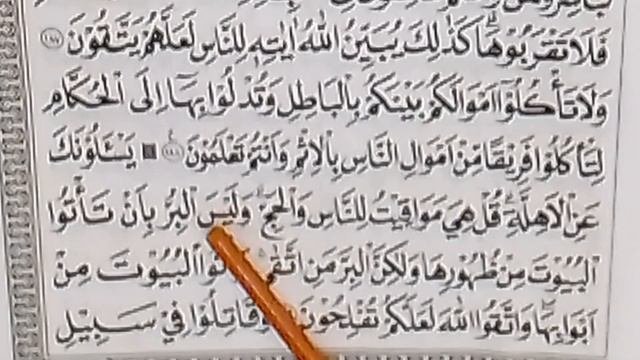 فَلَا تَقْرَبُوهَاۗ كَذٰلِكَ يُبَيِّنُ اللّٰهُ اٰيٰتِهٖ لِلنَّاسِ لَعَلَّهُمْ يَتَّقُوْنَ ١٨٧
وَلَا تَأْكُلُوْٓا اَمْوَالَكُمْ بَيْنَكُمْ بِالْبَاطِلِ وَتُدْلُوْا بِهَآ اِلَى الْحُكَّامِ
لِتَأْكُلُوْا فَرِيْقًا مِّنْ اَمْوَالِ النَّاسِ بِالْاِثْمِ وَاَنْتُمْ تَعْلَمُوْنَ ١٨٨ يَسْـَٔلُوْنَكَ
عَنِ الْاَهِلَّةِۗ قُلْ هِيَ مَوَاقِيْتُ لِلنَّاسِ وَالْحَجِّۗ وَلَيْسَ الْبِرُّ بِاَنْ تَأْتُوا
الْبُيُوْتَ مِنْ ظُهُوْرِهَا وَلٰكِنَّ الْبِرَّ مَنِ اتَّقٰى الْبُيُوْتَ مِنْ
اَبْوَابِهَاۖ وَاتَّقُوا اللّٰهَ لَعَلَّكُمْ تُفْلِحُوْنَ وَقَاتِلُوْا فِيْ سَبِيْلِ